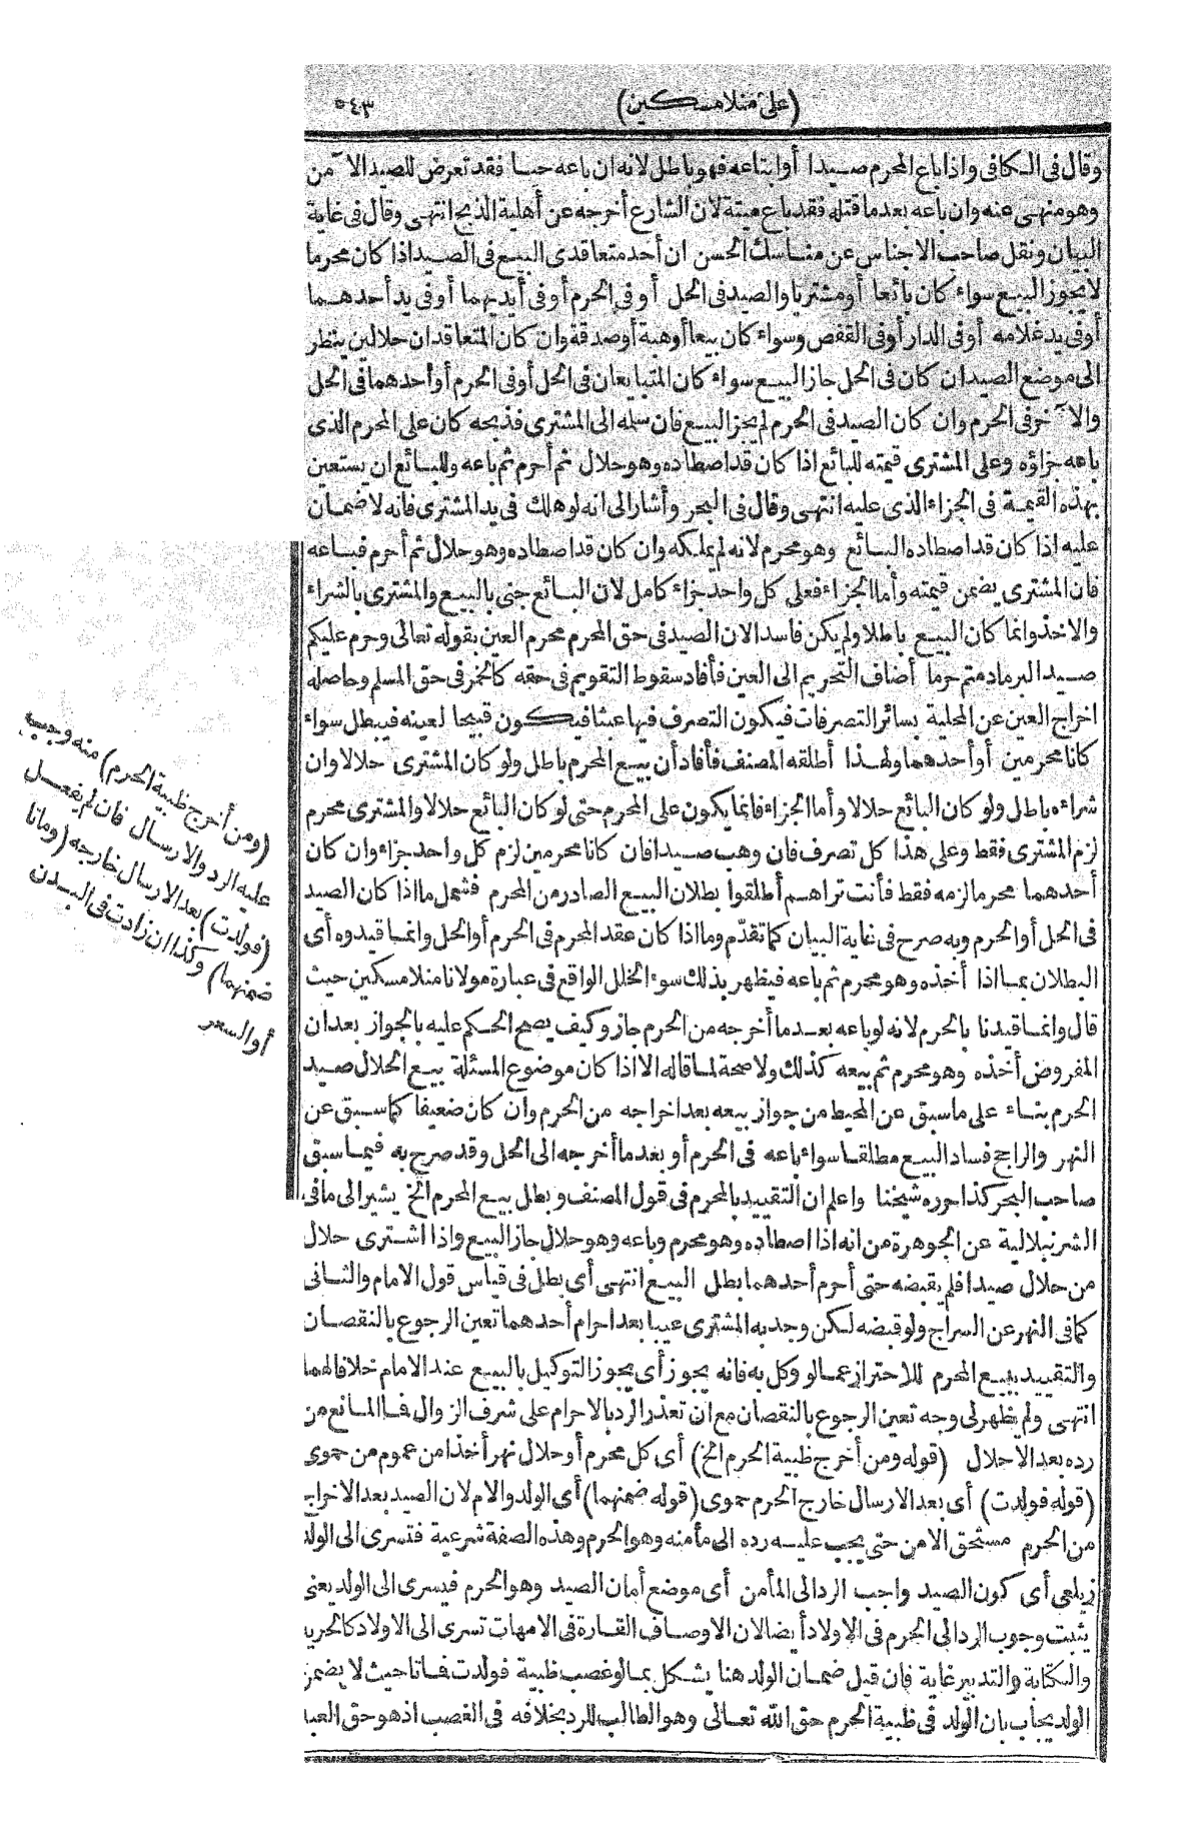 (على منلا مسكين)
٥٤٣
وقال فى الكافى واذا باع المحرم صيدا أو ابتاعه فهو باطل لانه ان باعه حيا فقد تعرض للصيد الا من
وهو منهى عنه وان باعه بعد ما قتله فقد باع ميتة لان الشارع أخرجه عن أهلية الذبح انتهى وقال فى غاية
البيان ونقل صاحب الاجناس عن مناسك الحسن ان أحد متعاقدى البيع فى الصيد اذا كان محرما
لا يجوز البيع سواء كان بائعا أو مشتريا والصيد فى الحل أو فى الحرم أو فى أيديهما أو فى يد أحدهما
أو فى يد غلامه أو فى الدار أو فى القفص وسواء كان بيعا أو هبة أو صدقة وان كان المتعاقدان حلالين ينظر
الى موضع الصيد ان كان فى الحل جاز البيع سواء كان المتبايعان فى الحل أو فى الحرم أو أحدهما فى الحل
والا خر فى الحرم وان كان الصيد فى الحرم لم يجز البيع فان سلمه الى المشترى فذبحه كان على المحرم الذى
باعه جزاؤه وعلى المشترى قيمته للبائع اذا كان قد اصطاده وهو حلال ثم أحرم ثم باعه وللبائع ان يستعين
بهذه القيمة فى الجزاء الذى عليه انتهى وقال فى البحر وأشار الى انه لو هلك فى يد المشترى فانه لا ضمان
عليه اذا كان قد اصطاده البائع وهو محرم لانه لم يملكه وان كان قد اصطاده وهو حلال ثم أحرم فباعه
فان المشترى يضمن قيمته وأما الجزاء فعلى كل واحد جزاء كامل لان البائع جنى بالبيع والمشترى بالشراء
والاخذ وانما كان البيع باطلا ولم يكن فاسدا لان الصيد فى حق المحرم محرم العين بقوله تعالى وحرم عليكم
صيد البر ما دمتم حرما أضاف التحريم الى العين فأفاد سقوط التقويم فى حقه كالخمر فى حق المسلم وحاصله
اخراج العين عن المحلية بسائر التصرفات فيكون التصرف فيها عبثا فيكون قبيحا لعينه فيبطل سواء
كانا محرمين أو أحدهما ولهذا أطلقه المصنف فأفاد أن بيع المحرم باطل ولو كان المشترى حلالا وان
شراءه باطل ولو كان البائع حلالا وأما الجزاء فانما يكون على المحرم حتى لو كان البائع حلالا والمشترى محرم
لزم المشترى فقط وعلى هذا كل تصرف فان وهب صيدا فان كانا محرمين لزم كل واحد جزاء وان كان
أحدهما محرما لزمه فقط فأنت تراهم أطلقوا بطلان البيع الصادر من المحرم فشمل ما اذا كان الصيد
فى الحل أو الحرم وبه صرح فى غاية البيان كما تقدّم وما اذا كان عقد المحرم فى الحرم أو الحل وانما قيدوه أى
البطلان بما اذا أخذه وهو محرم ثم باعه فيظهر بذلك سوء الخلل الواقع فى عبارة مولانا منلا مسكين حيث
قال وانما قيدنا بالحرم لانه لو باعه بعد ما أخرجه من الحرم جاز وكيف يصح الحكم عليه بالجواز بعد ان
المفروض أخذه وهو محرم ثم بيعه كذلك ولا صحة لما قاله الا اذا كان موضوع المسئلة بيع الحلال صيد
الحرم بناء على ما سبق عن المحيط من جواز بيعه بعد اخراجه من الحرم وان كان ضعيفا كما سبق عن
النهر والراجح فساد البيع مطلقا سواء باعه فى الحرم أو بعد ما أخرجه الى الحل وقد صرح به فيما سبق
صاحب البحر كذا حرره شيخنا واعلم ان التقييد بالمحرم فى قول المصنف وبطل بيع المحرم الخ يشير الى ما فى
الشرنبلالية عن الجوهرة من انه اذا اصطاده وهو محرم وباعه وهو حلال جاز البيع واذا اشترى حلال
من حلال صيدا فلم يقبضه حتى أحرم أحدهما بطل البيع انتهى أى بطل فى قياس قول الامام والثانى
كما فى النهر عن السراج ولو قبضه لكن وجد به المشترى عيبا بعد احرام أحدهما تعين الرجوع بالنقصان
والتقييد ببيع المحرم للاحتراز عما لو وكل به فانه يجوز أى يجوز التوكيل بالبيع عند الامام خلافا لهما
انتهى ولم يظهر لى وجه تعين الرجوع بالنقصان مع ان تعذر الرد بالاحرام على شرف الزوال فما المانع من
رده بعد الاحلال (قوله ومن أخرج ظبية الحرم الخ) أى كل محرم أو حلال نهر أخذا من عموم من حموى
(قوله فولدت) أى بعد الارسال خارج الحرم حموى (قوله ضمنهما) أى الولد والام لان الصيد بعد الاخراج
من الحرم مستحق الامن حتى يجب عليه رده الى مأمنه وهو الحرم وهذه الصفة شرعية فتسرى الى الولد
زيلعى أى كون الصيد واجب الرد الى المأمن أى موضع أمان الصيد وهو الحرم فيسرى الى الولد يعنى
يثبت وجوب الرد الى الحرم فى الاولاد أيضا لان الاوصاف القارة فى الامهات تسرى الى الاولاد كالحرية
والكتابة والتدبير غاية فان قيل ضمان الولد هنا يشكل بما لو غصب ظبية فولدت فماتا حيث لا يضمن
الولد يجاب بان الولد فى ظبية الحرم حق الله تعالى وهو الطالب للرد بخلافه فى الغصب اذ هو حق العبد
(ومن أخرج ظبية الحرم) منه وجب
عليه الرد والارسال فان لم يفعل
(فولدت) بعد الارسال خارجه (وماتا
ضمنهما) وكذا ان زادت فى البدن
أو السعر